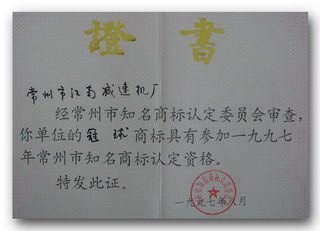 證書
常州市江南减速机厂
经常州市知名商标认定委员会审查,
你单位的冠球商标具有参加一九九七
年常州市知名商标认定资格。
特发此证。
一九九七年八月